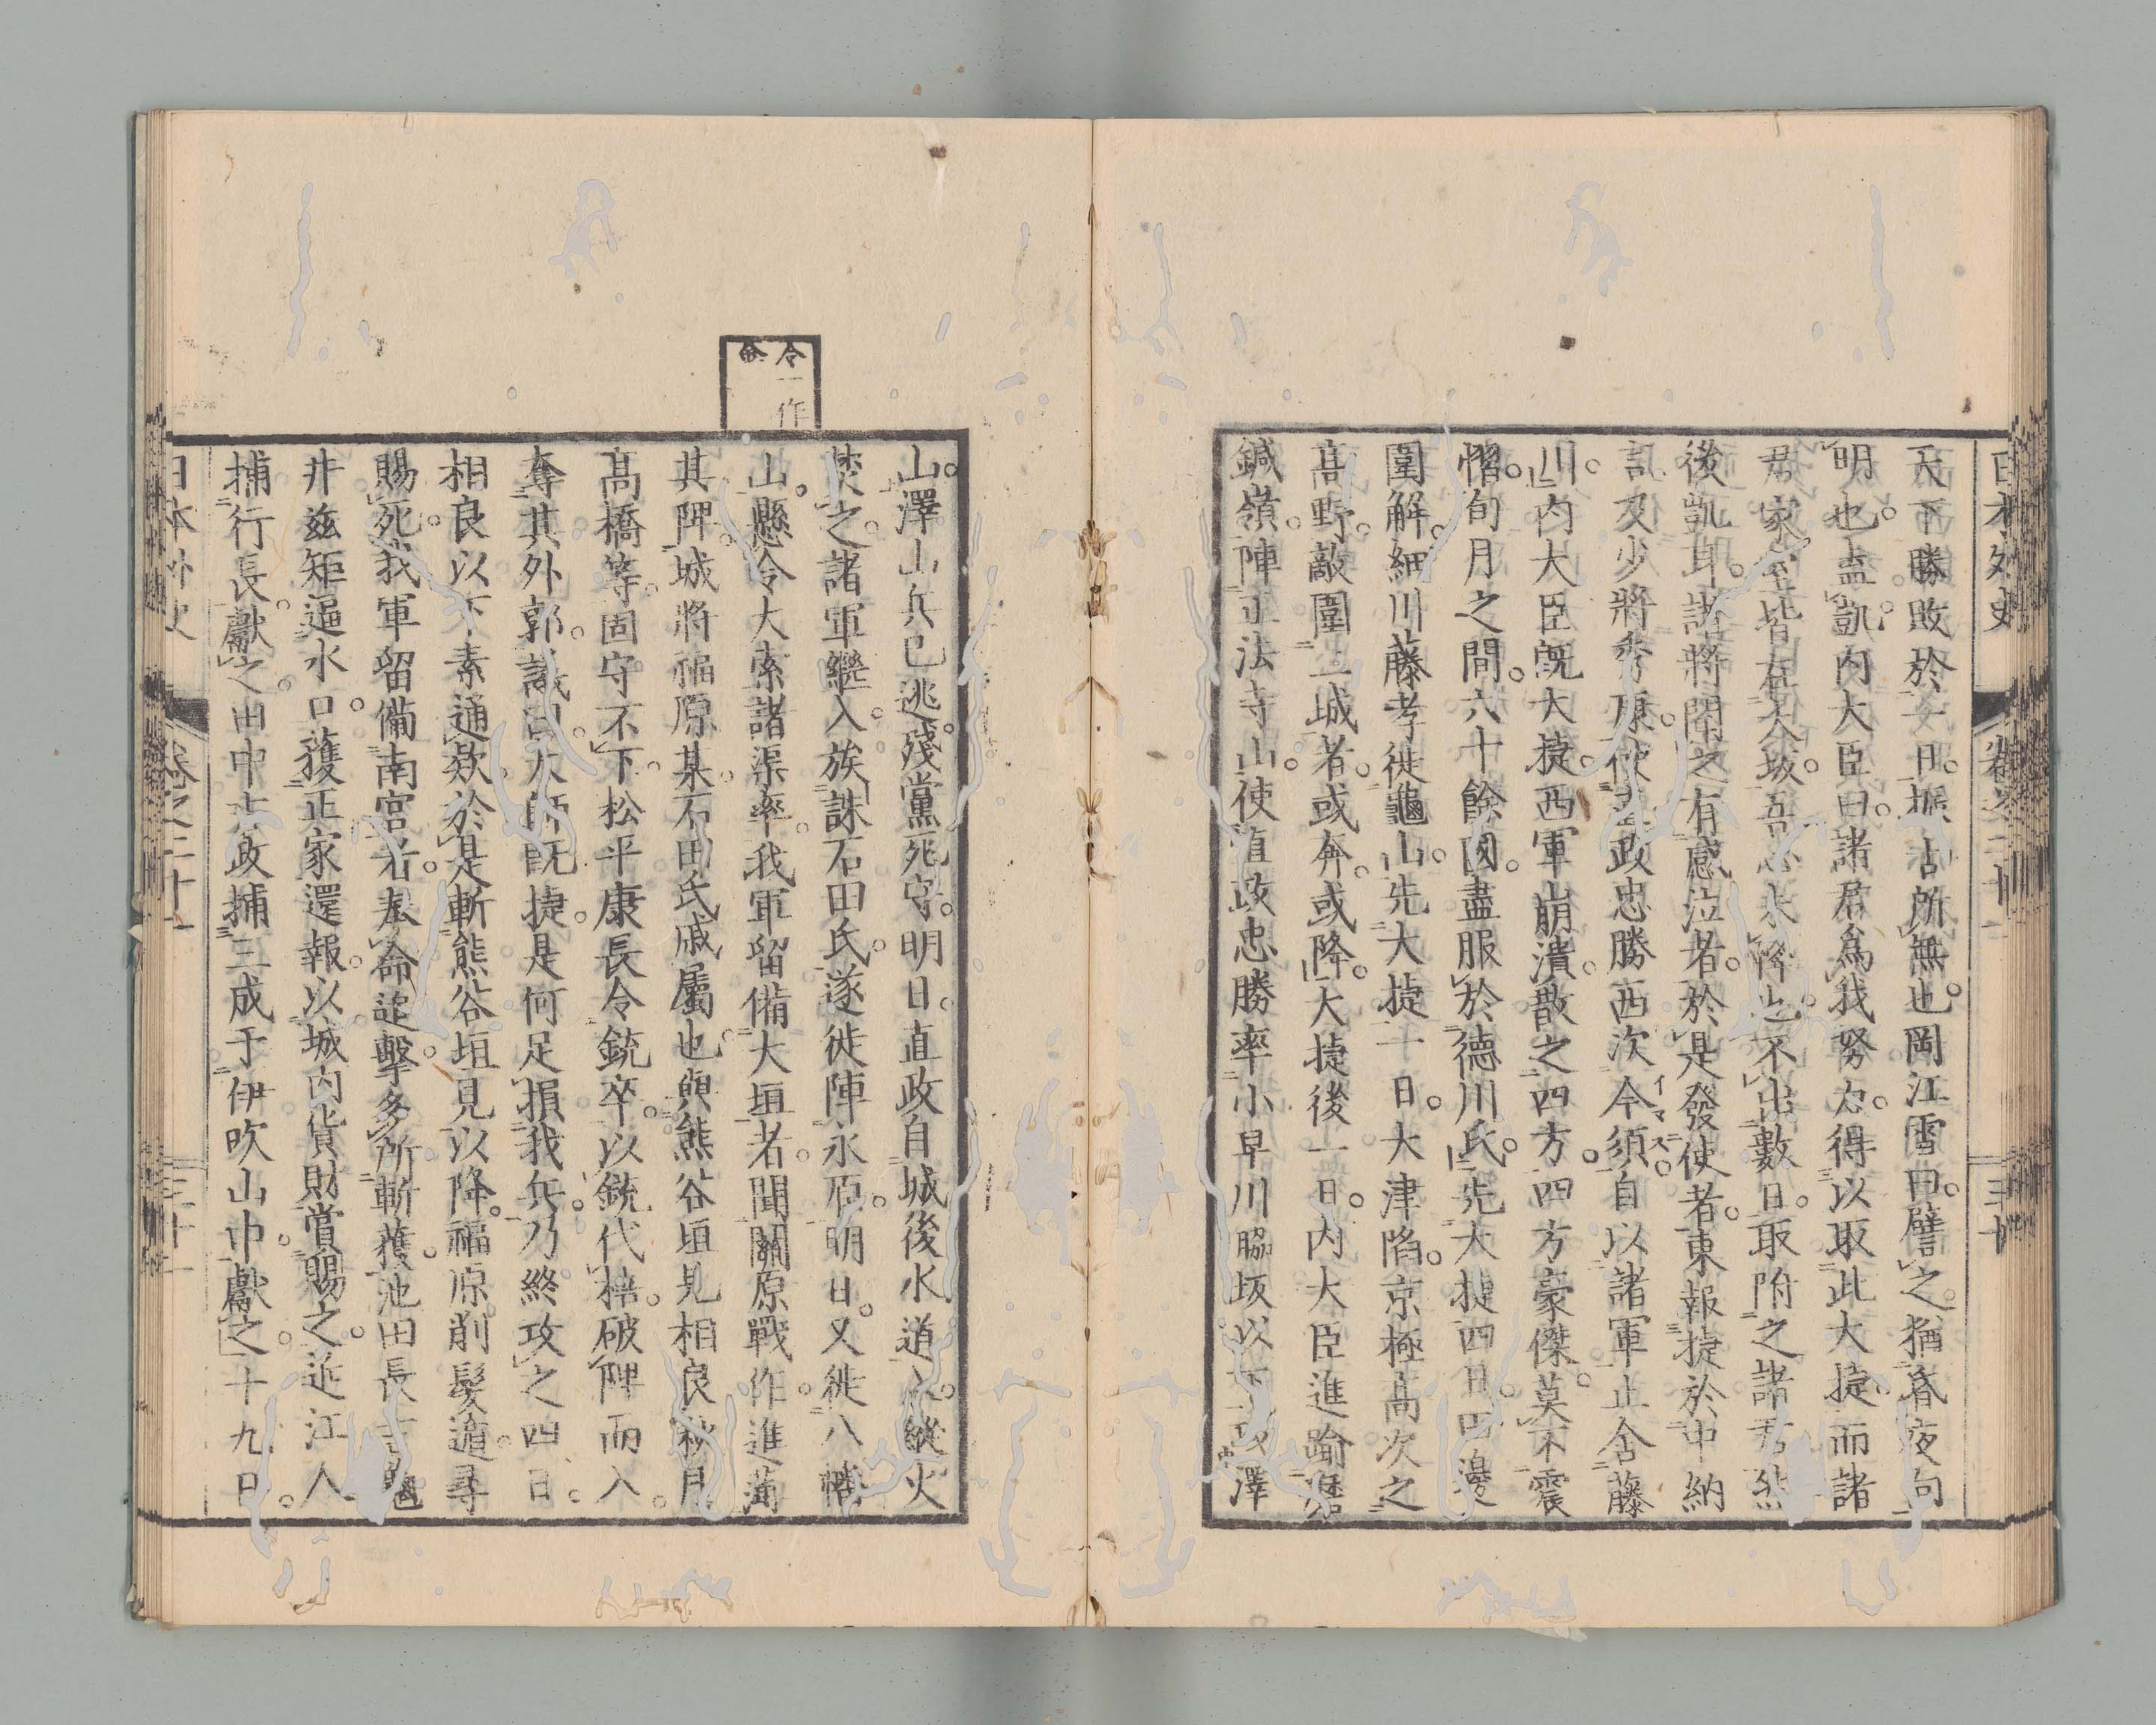 日本外史 卷之二十一 三十
天下勝敗於一日。振古所無也。岡江雪曰。譬之。猶昏夜向
明也。盍凱。内大臣曰。諸君爲我努力。得以取此大捷。而諸
君家室皆在大坂。吾心未降也。不出數日。取附之諸君。然
後凱耳。諸將聞之。有感泣者。於是發使者。東報捷於中納
言及少將秀康。使直政忠勝西次今須。自以諸軍止舍藤
川。内大臣既大捷。西軍崩潰。散之四方。四方豪傑。莫不震
慴。旬月之間。六十餘國。盡服於德川氏。先大捷四日。田邊
圍解。細川藤孝徙龜山。先大捷一日。大津陷。京極高次之
高野。敵圍二城者。或奔或降。大捷後一日。内大臣進踰磨
鍼嶺。陣正法寺山。使直政忠勝率小早川脇坂以下攻澤
山。澤山兵已逃。殘黨死守。明日。直政自城後水道入。縱火
焚之。諸軍繼入。族誅石田氏。遂徙陣永原。明日。又徙八幡
山。懸令大索諸渠率。我軍留備大垣者。聞關原戰作。進薄
其陴。城將福原某。石田氏戚屬也。與熊谷垣見相良秋月
高橋等。固守不下。松平康長令銃卒。以銃代棓。破陴而入。
奪其外郭。議曰。大師既捷。是何足損我兵。乃終攻之。四日
相良以下素通欵。於是斬熊谷垣見以降。福原削髮遁。尋
賜死。我軍留備南宮者。奉命逆擊。多所斬獲。池田長吉龜
井玆矩逼水口。獲正家。還報。以城内貨財賞賜之。近江人
捕行長獻之。田中吉政捕三成于伊吹山中。獻之。十九日。
令一作
命
日本外史 卷之二十一 三十一